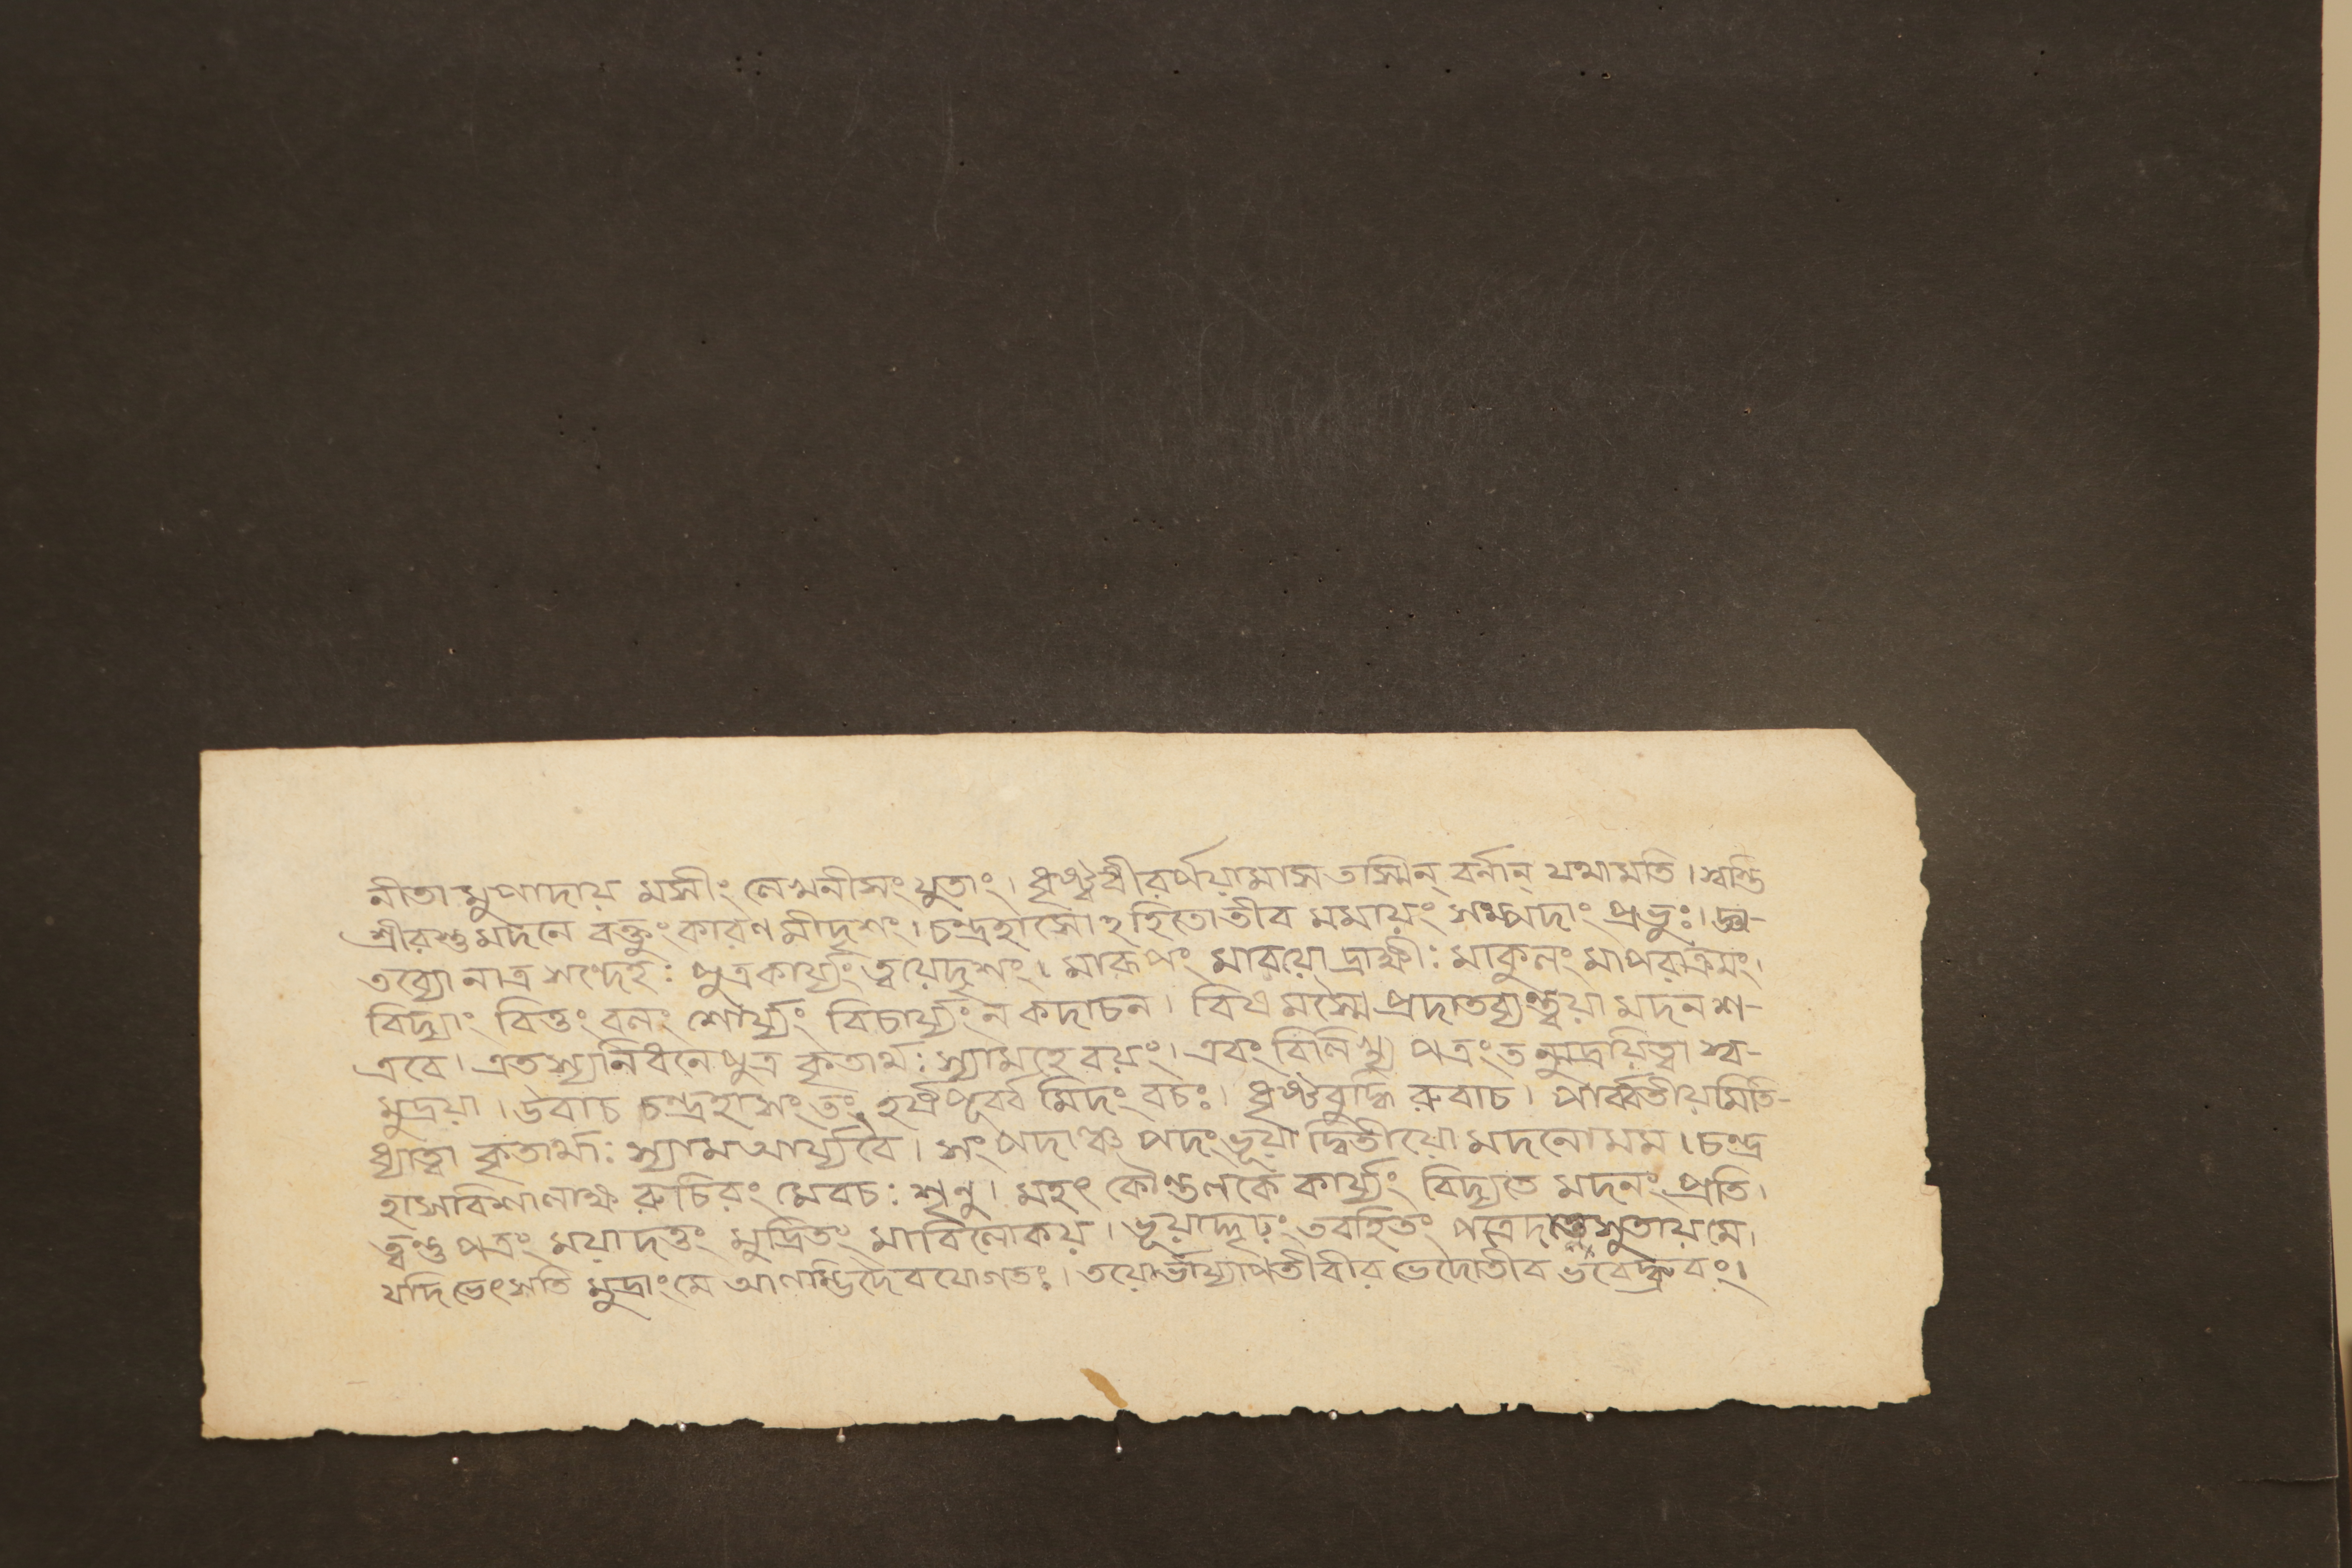 নীতা মুপাদায় মসীং লেখনীসংযুতাং। ধৃষ্টধীরর্পয়ামাস তস্মিন্ বর্নান্ যথামতি। স্বস্তি
শ্রীরস্তু মদনে বক্তুং কারণ মীদৃশং। চন্দ্রহাসোঽহিতোতীব মমায়ং সম্পদাং প্রভুঃ। জ্ঞা-
তব্যো নাত্র সন্দেহঃ পুত্রকার্য্যং ত্বয়েদৃশং। মারূপং মাবয়ো দ্রাক্ষীঃ মাকুলং মাপরাক্রমং।
বিদ্যাং বিত্তং বলং শৌর্য্যং বিচার্য্যং ন কদাচন। বিষ মস্মৈ প্রদাতব্যন্ত্বয়া মদন শ-
ত্রবে। এতস্য নিধনে পুত্র কৃতার্থাঃ স্যামহে বয়ং। এবং বিলিখ্য পত্রং তন্মুদ্রয়িত্বা স্ব-
মুদ্রয়া। উবাচ চন্দ্রহাসং তং হর্ষপূর্ব্ব মিদং বচঃ। ধৃষ্টবুদ্ধি রুবাচ। পার্ব্বতীয়মিতি-
ধ্যাত্বা কৃতার্থাঃ স্যাম আর্য্যবৈ। সংপদাঞ্চ পদং ভূয়া দ্বিতীয়ো মদনো মম। চন্দ্র
হাস বিশালাক্ষ রুচিরং মেবচঃ শৃনু। মহৎ কৌন্তলকে কার্য্যং বিদ্যতে মদনং প্রতি।
ত্বন্তু পত্রং ময়া দত্তং মুদ্রিতং মা বিলোকয়। ভূয়াদ্দৃঢ়ং তবহিতং পত্রং সুতায় মে।
যদি ভেৎসতি মুদ্রাং মে দৈবযোগতঃ। তয়োর্ভার্য্যাপতীবীর ভেদোতীব ভবেদ্ধ্রুবং।